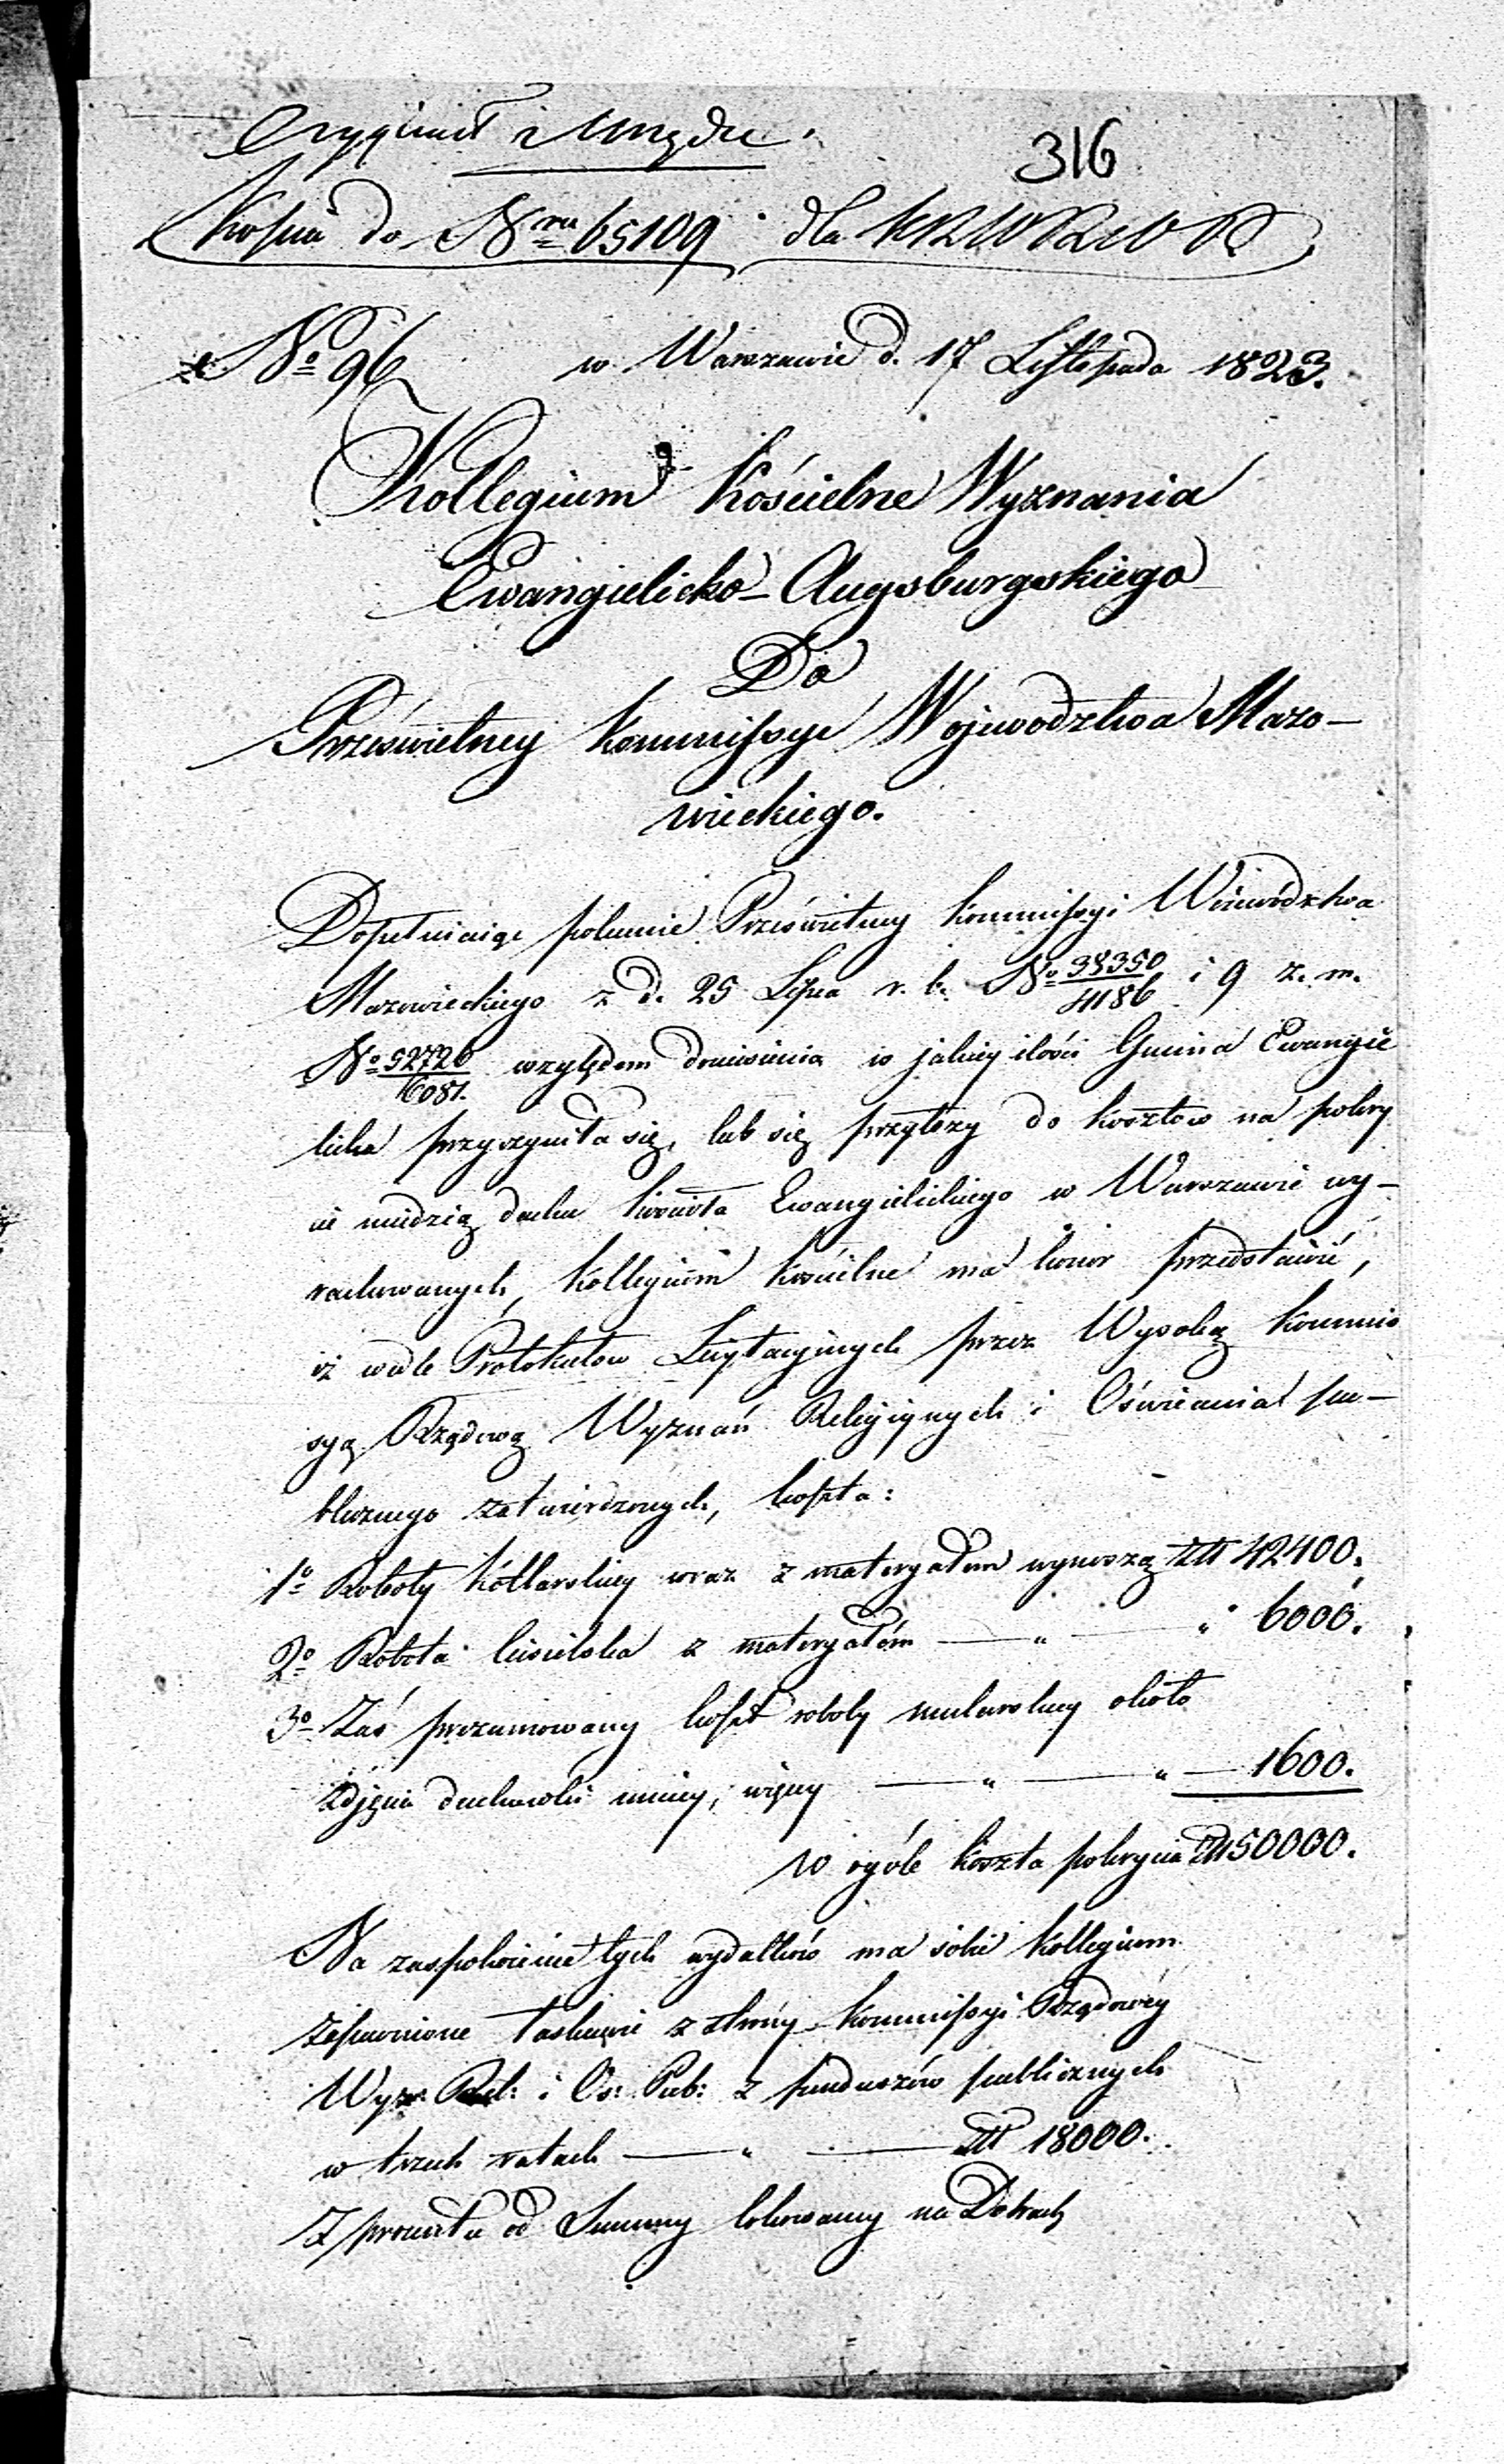 Oryginał z Urzędu.
316
Kopia do Nru 65109 dla KRZWRZiOP
No 96 w Warszawie d. 17 Listopada 1823.
Kollegium Kościelne Wyznania
Ewangielicko-Augsburgskiego
Do
Prześwietney Kommissyi Wojewodztwa Mazo-
wieckiego.
Dopełniaiąc polecenie Prześwietney Kommissyi Woiewództwa
Mazowieckiego z d. 25 Lipca r. b. No 38350/41186 i 9 z. m.
No 52726/6081. względem doniesienia w jakiey ilości Gmina Ewangie
licka przyczyniła się, lub się przyłoży do kosztów na pokry
cie miedzią dachu kościoła Ewangielickiego w Warszawie wy-
rachowanych, Kollegium kościelne ma honor przedstawić,
iż wedle Protokułów Licytacyinych przez Wysoką Kommis
syą Rządową Wyznań Religiynych i Oświecenia pu-
blicznego zatwierdzonych, koszta:
1o Roboty kotlarskiey wraz z materyałem wynoszą Złł 42400.
2o Robota ciesielska z materyałem — " — " 6000.
3o Zaś prezumowany koszt roboty mularskiey około
zdjęcia dachówki mniey, więcey — " — " — 1600.
w ogóle koszta pokrycia Złł 50000.
Na zaspokoienie tych wydatków ma sobie Kollegium
zapewnione łaskawie z strony Kommissyi Rządowéy
Wyz: Rel: i Oś: Pub: z funduszów publicznych
w trzech ratach — " — Złł 18000.
Z procentu od Summy lokowaney na Dobrach